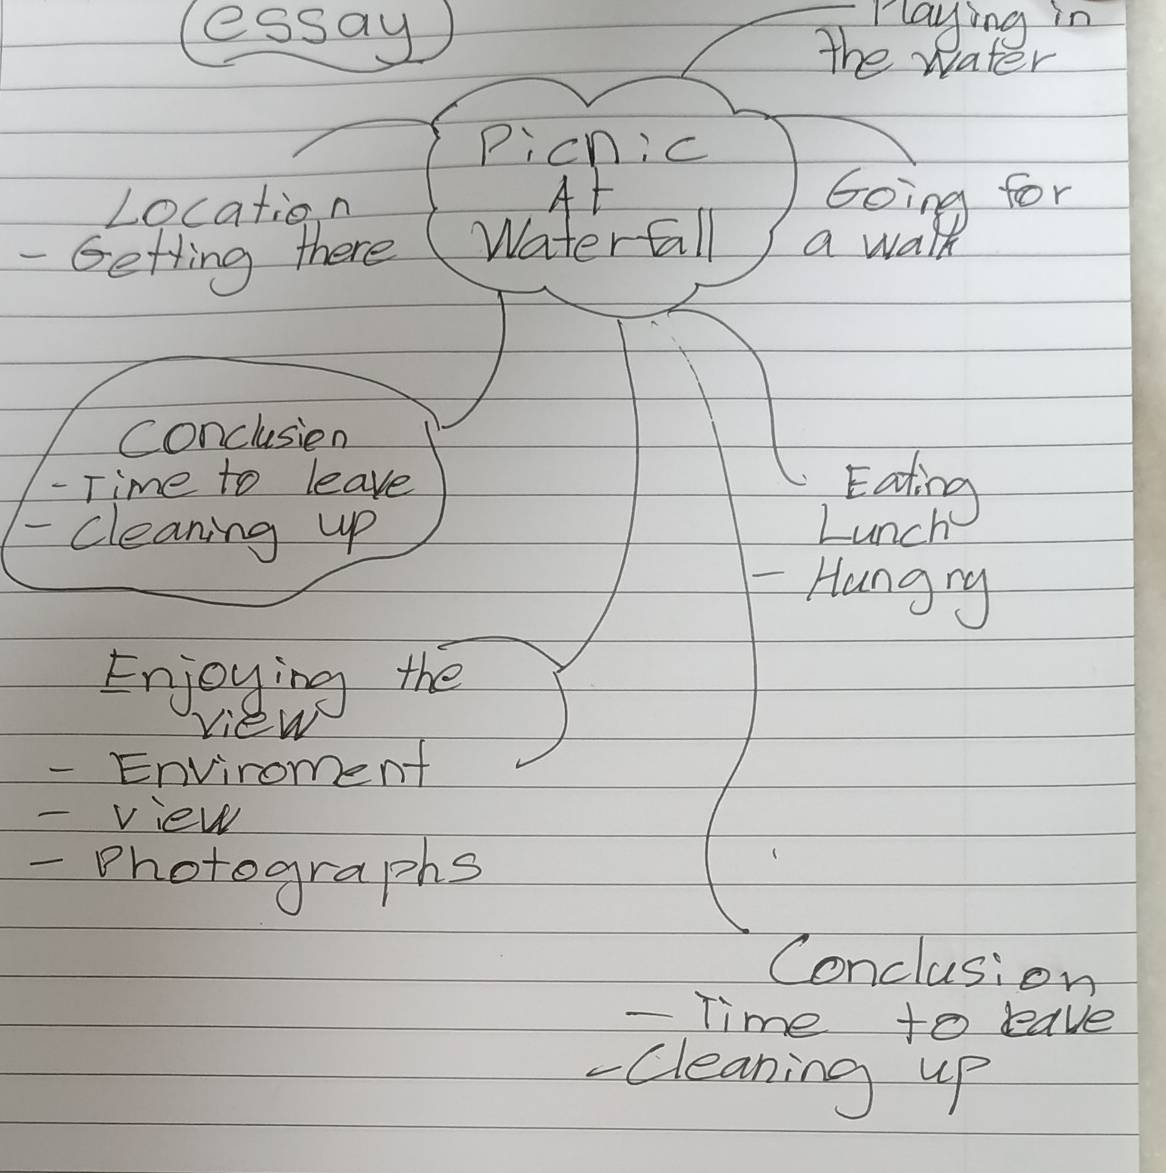 essay
Playing in
the water
Picnic
At
Waterfall
Location
- Getting there
Going for
a walk
Conclusion
- Time to leave
- Cleaning up
Eating
Lunch
- Hungry
Enjoying the
view
- Enviroment
- view
- Photographs
Conclusion
- Time to leave
- Cleaning up